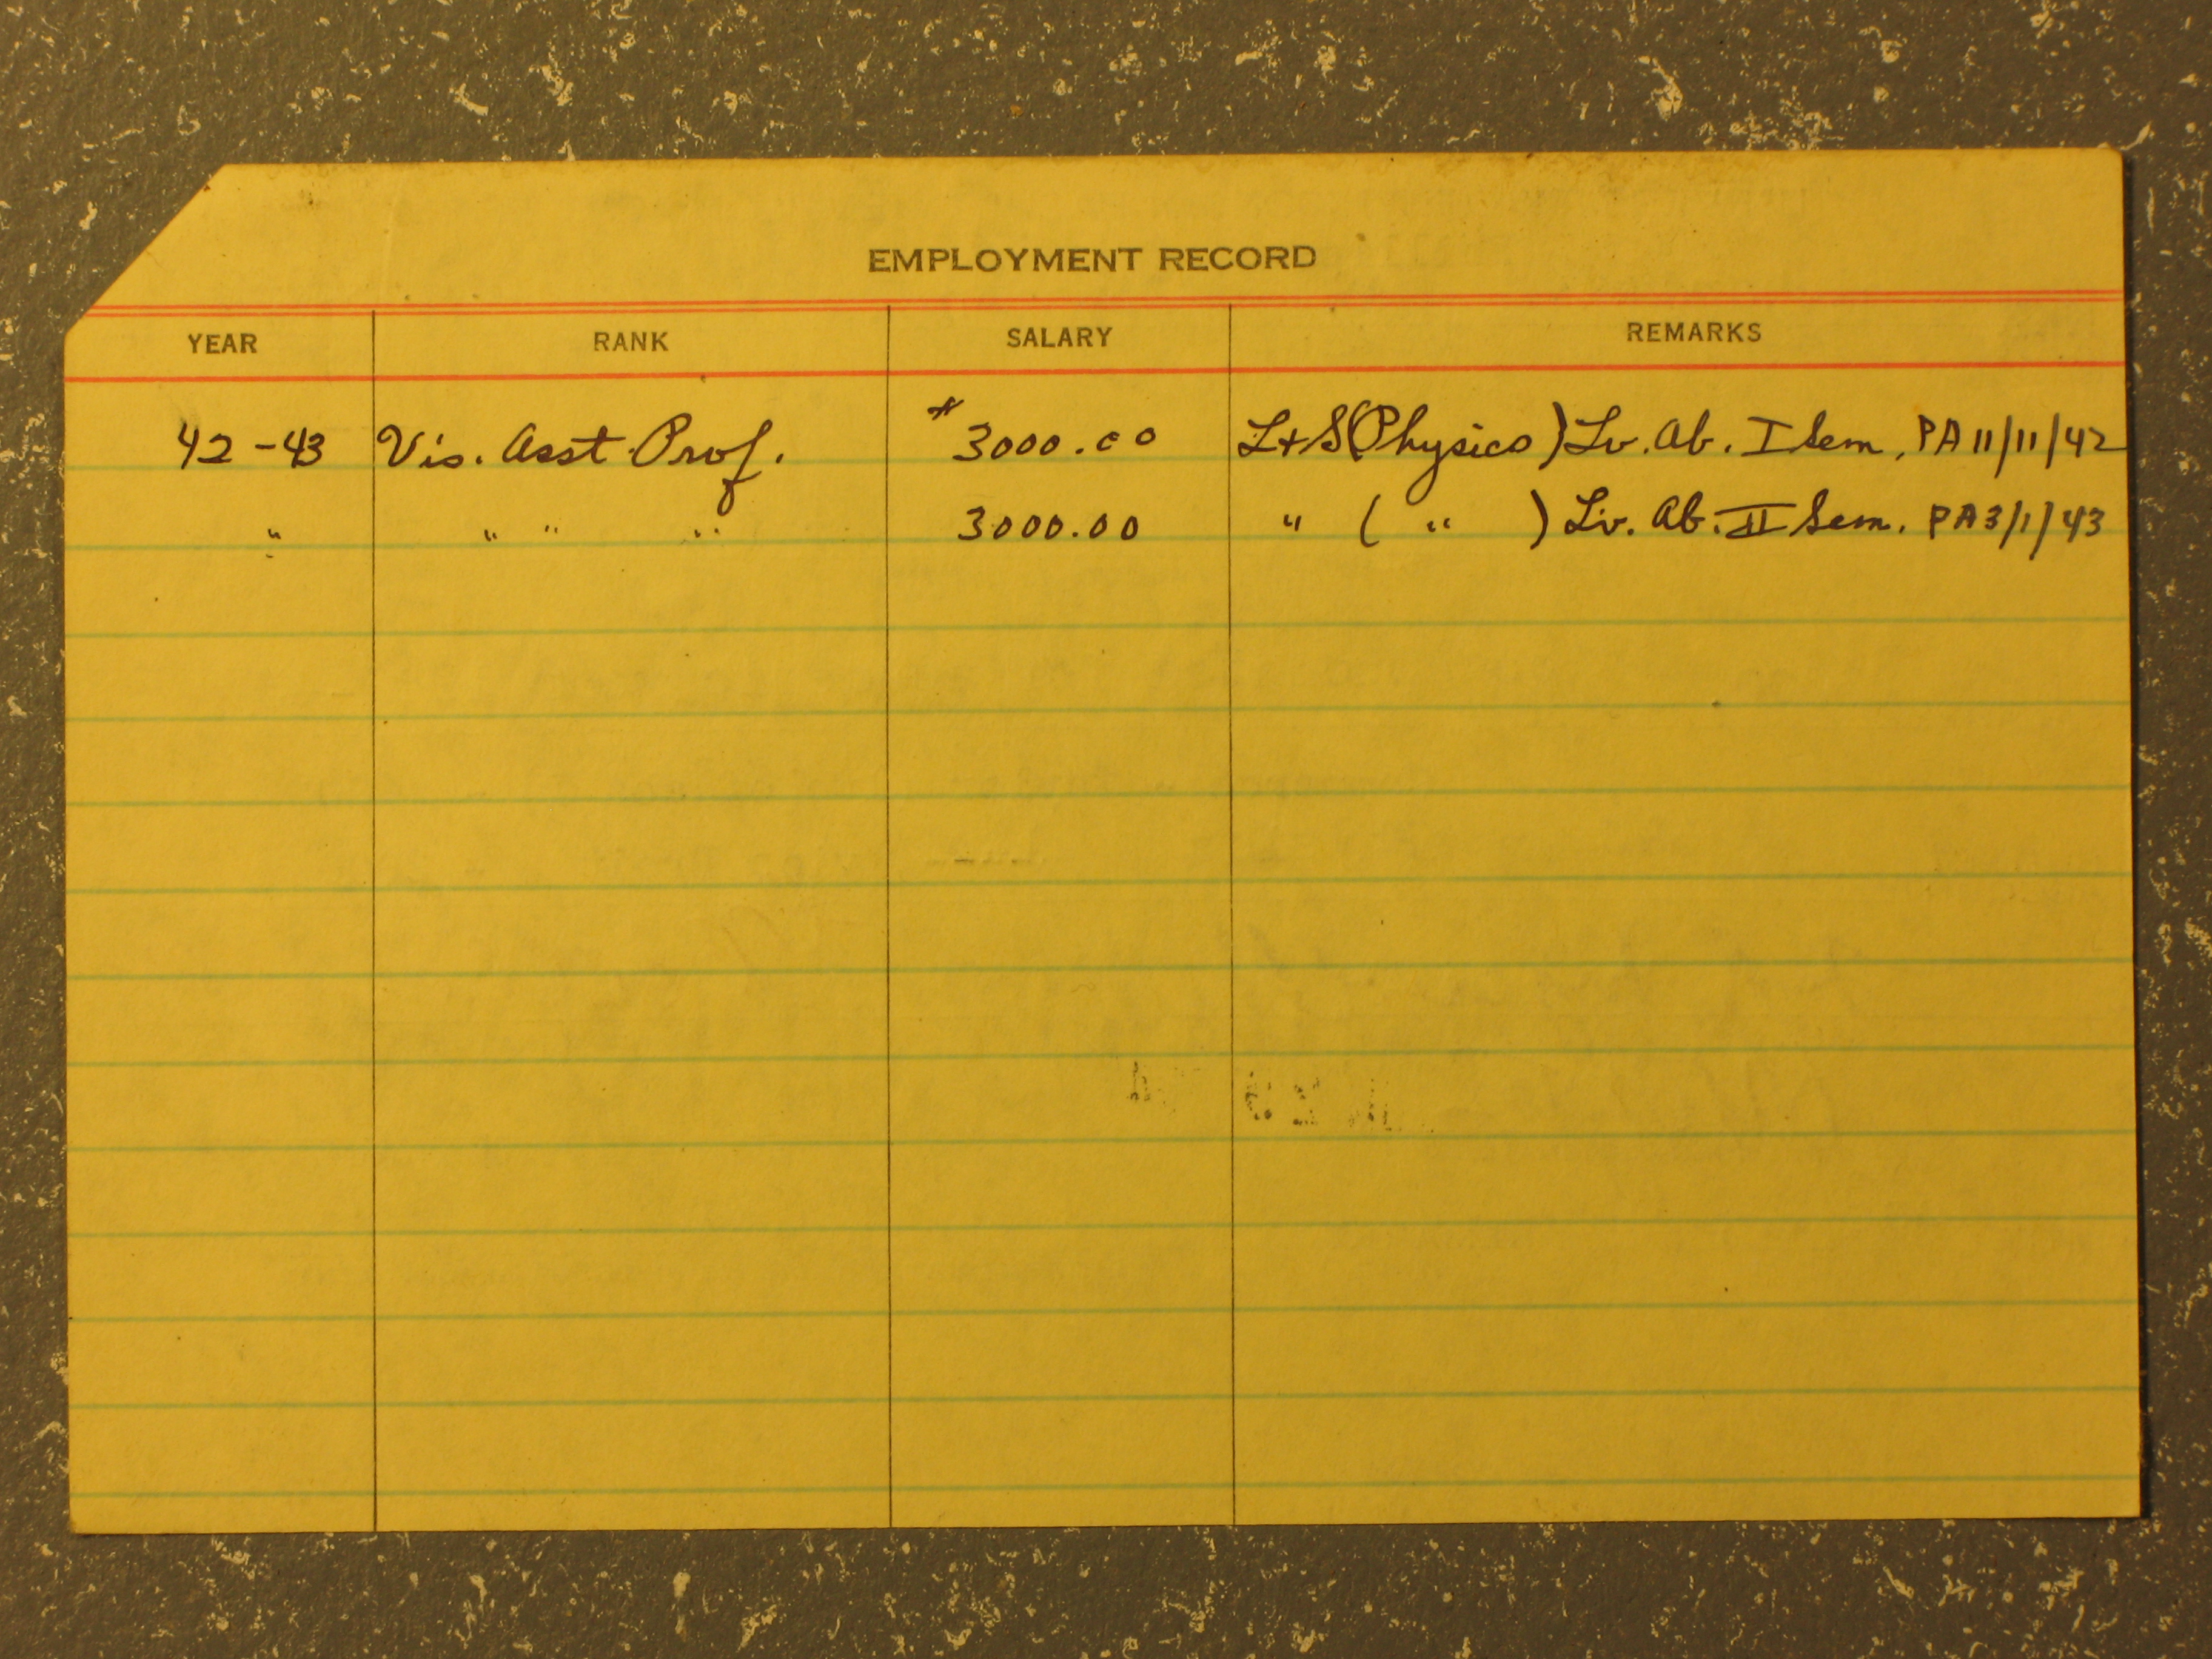 EMPLOYMENT RECORD
YEAR RANK SALARY REMARKS
42-43 Vis. Asst Prof. $3000.00 L+S(Physics) Lv. Ab. I Sem. PA 11/11/42
" " " " 3000.00 " ( " ) Lv. Ab. II Sem. PA 3/1/43